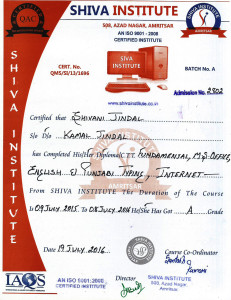 SHIVA INSTITUTE
QAC
508, AZAD NAGAR, AMRITSAR
AN ISO 9001 : 2008
CERTIFIED INSTITUTE
CERT. No.
QMS/SI/13/1696
SIVA
INSTITUTE
BATCH No. A
www.shivainstitute.co.in
Admission No. 2802
SHIVA INSTITUTE
Certified that SHIVANI JINDAL
S/o D/o KAMAL JINDAL
has Completed His/Her Diploma In I.T. FUNDAMENTAL, M.S OFFICE,
ENGLISH & PUNJABI TYPING, INTERNET
From SHIVA INSTITUTE the Duration of The Course
is 09 JULY 2015 to 08 JULY 2016 He/She Has Got A Grade
Date 19 JULY 2016
Course Co-ordinator
Director
SHIVA INSTITUTE
508, Azad Nagar,
Amritsar
IAQS
AN ISO 9001:2008
CERTIFIED INSTITUTE